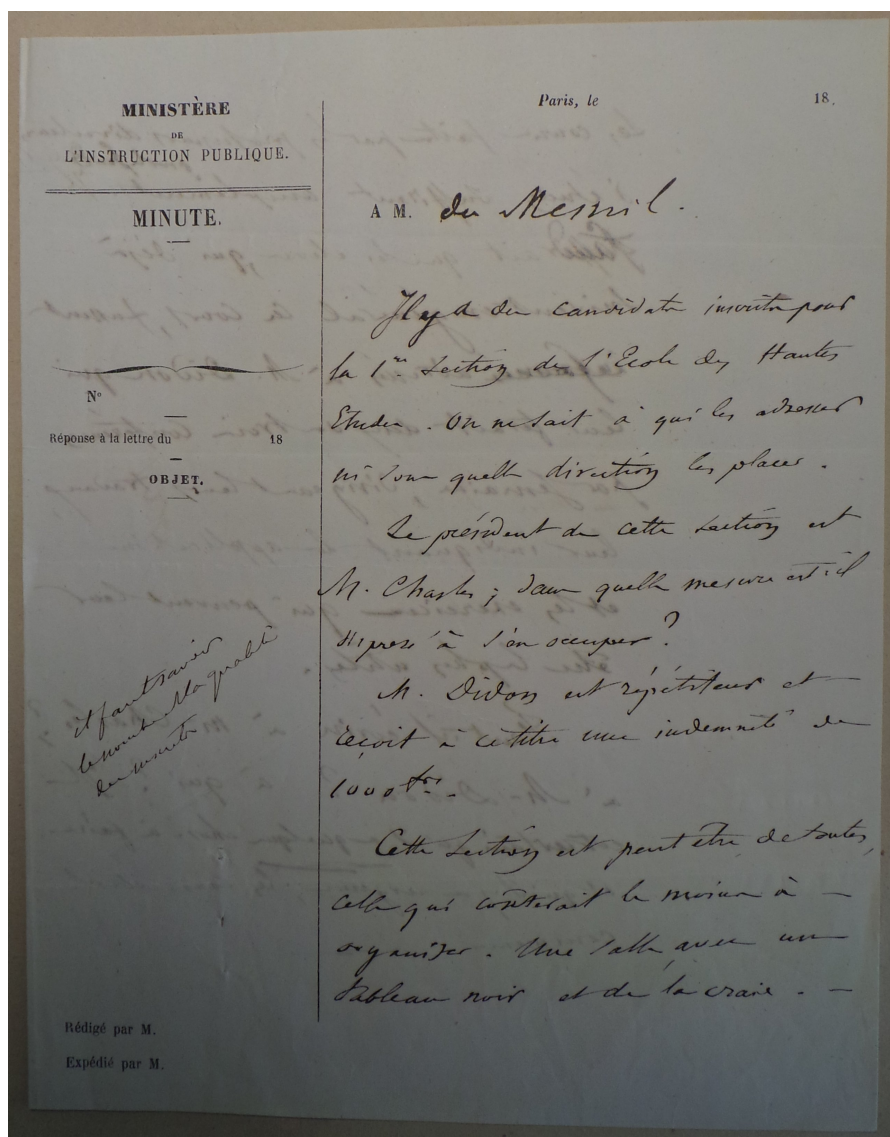 MINISTÈRE
DE
L'INSTRUCTION PUBLIQUE.
MINUTE.
N°
Réponse à la lettre du 18
OBJET.
il faut savoir
le nombre et la qualité
des inscrits
Rédigé par M.
Expédié par M.
Paris, le 18 .
A M. du Mesnil.
Il y a des candidats inscrits pour
la 1re Section de l'Ecole des Hautes
Etudes. On ne sait à qui les adresser
ni sous quelle direction les placer.
Le président de cette section est
M. Chasles ; dans quelle mesure est-il
disposé à s'en occuper ?
M. Didon est répétiteur et
reçoit à ce titre une indemnité de
1000 frs.
Cette section est peut être de toutes,
celle qui coûterait le moins à
organiser. Une salle avec un
tableau noir et de la craie. —